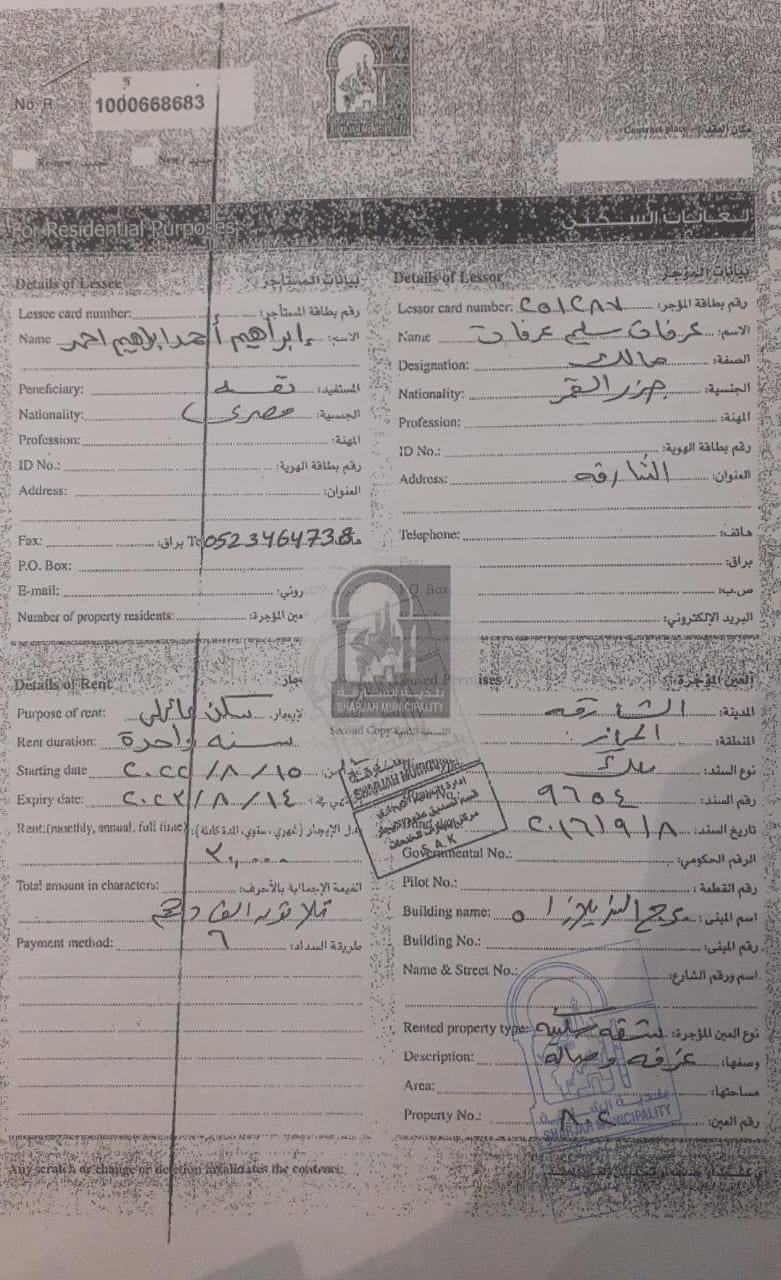 No. R 1000668683
مكان العقد Contract place
Renew تجديد New جديد
For Residential Purposes لغايات السكن
Details of Lessee بيانات المستأجر
Lessee card number: رقم بطاقة المستأجر:
Name إبراهيم أحمد إبراهيم احمد الاسم:
Peneficiary: نفسه المستفيد:
Nationality: مصري الجنسية:
Profession: المهنة:
ID No.: رقم بطاقة الهوية:
Address: العنوان:
Fax: براق: 0523464738
P.O. Box:
E-mail:
Number of property residents:
Details of Lessor بيانات المؤجر
Lessor card number: ٢٥١٢٨٧ رقم بطاقة المؤجر:
Name عرفات سليم عرفات الاسم:
Designation: مالك الصفة:
Nationality: جزر القمر الجنسية:
Profession: المهنة:
ID No.: رقم بطاقة الهوية:
Address: الشارقه العنوان:
Telephone: هاتف:
براق:
P.O. Box: ص.ب:
البريد الإلكتروني:
بلدية الشارقة
SHARJAH MUNICIPALITY
Second Copy
Details of Rent
Purpose of rent: سكن عائلي
Rent duration: سنه واحدة
Starting date ٢٠٢٢/٨/١٥
Expiry date: ٢٠٢٣/٨/١٤
Rent:(monthly, annual, full time) بدل الإيجار (شهري، سنوي، المدة كاملة):
٣٠,٠٠٠
Total amount in characters: القيمة الإجمالية بالأحرف:
ثلاثون الف درهم
Payment method: ٦ طريقة السداد:
العين المؤجرة:
المدينة: الشارقه
المنطقة: المجاز
نوع السند: ملك
رقم السند: ٩٦٥٤
تاريخ السند: ٢٠١٦/٩/٨
Governmental No.: الرقم الحكومي:
Pilot No.: رقم القطعة:
Building name: اسم المبنى:
Building No.: رقم المبنى:
Name & Street No.: اسم ورقم الشارع:
Rented property type: شقه سكنيه نوع العين المؤجرة:
Description: غرفه وصالة وصفها:
Area: مساحتها:
Property No.: ٨٠٤ رقم العين:
بلدية الشارقة
SHARJAH MUNICIPALITY
Any scratch or change or deletion invalidates the contract.